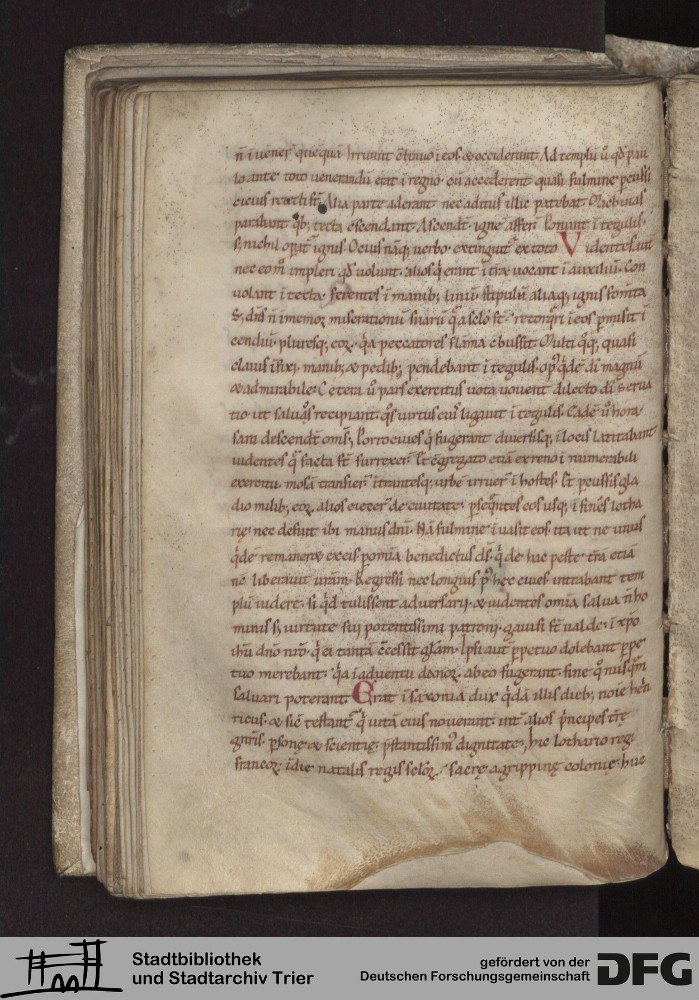 n̄ i uener̄ quequā Irruunt ɔ̄tinuo i eos & occiderunt Ad templū ū qđ pau
lo ante toto uenerandū erit i regno. cū accederent quasi fulmine pcussi
reiecti sт̄. Alia parte aderant nec aditus illic patebat Machinas
parabant qb; tecta ascendant Ascendt̄. igne afferi Ponunt i tegulis.
s; nichil ignis. Ocius naq; uerbo. extinguit ex toto Videntes uū
nec eoꝝ impleri qđ uolunt. alios q̇ erant i tr̄a uocant i auxiliū. Con
uolant i tecta. ferentes i manib; linū. stipulā aliaq; ignis fomita
S; dn̄s n̄ imemor miserationū suarū q̄ a sclo sт̄. retorq̄ri i eos pmisit i
cendiū. pluresq; eoꝝ. q̇a peccatores flāma ɔbussit Multi q̄q; quasi
clauis ifixi. manib; & pedib; pendebant i tegulis. opˀ q̇dē di magnū
& admirabile. Ceteri ū pars exercitus uota uouent dilecto di Serua
tio ut saluas recipiant. q̄s uirtus eiˀ ligauit i tegulis. Eadē ū hora
sani descendt̄ oms̄. Porro ciues q̇ fugerant diuersisq; i locis latitabant
uidentes q̄ facta sт̄ surrexer̄. Et cgregato etiā ex reno i numerabili
exercitu. mosā transier̄ itrantesq; urbē irruer̄ i hostes. Et pcussis gla
dio milib; eoꝝ. alios eiecer̄ de ciuitate. pseq̄ntes eos usq; i fines lotha
rię. nec defuit ibi manus dn̄i. Nā fulmine iuasit eos. ita ut ne unus
q̇dē remaneret ex eis p omīa benedictus ds̄. q̇ de hac peste tr̄a etiā
nc̄ liberauit urām. Regressi nec longius pˀ hec ciues intrabant tem
plū uidere. si q̇d tulissent aduersarii. & uidentes omīa salua n̄ ho
minus s; uirtute sui potentissimi patroni. gauisi sт̄ ualde. i xp̄o
ih̄u dn̄o nr̄o. q̇ ei tantā ɔcessit gl̄am. Ipsi aut̄ ppetuo dolebant ppe
tuo merebant. q̇a i aduentu danoꝝ. ab eo fugerant. sine q̄ nusqm̄
saluari poterant. Erat i saxoniā dux q̇dā illis dieb; noīe hen
ricus. & sic̄ testant̄ q̇ uitā eius nouerunt. int̄ alios p̄ncipes tr̄ę
gn̄ris. psonę & scientię. p̄stantissimˀ dignitate. hic lothario regi
francoꝝ idie natalis regis scl̄oꝝ. sacrę agrippinę colonię huc
Stadtbibliothek
und Stadtarchiv Trier
gefördert von der
Deutschen Forschungsgemeinschaft
DFG